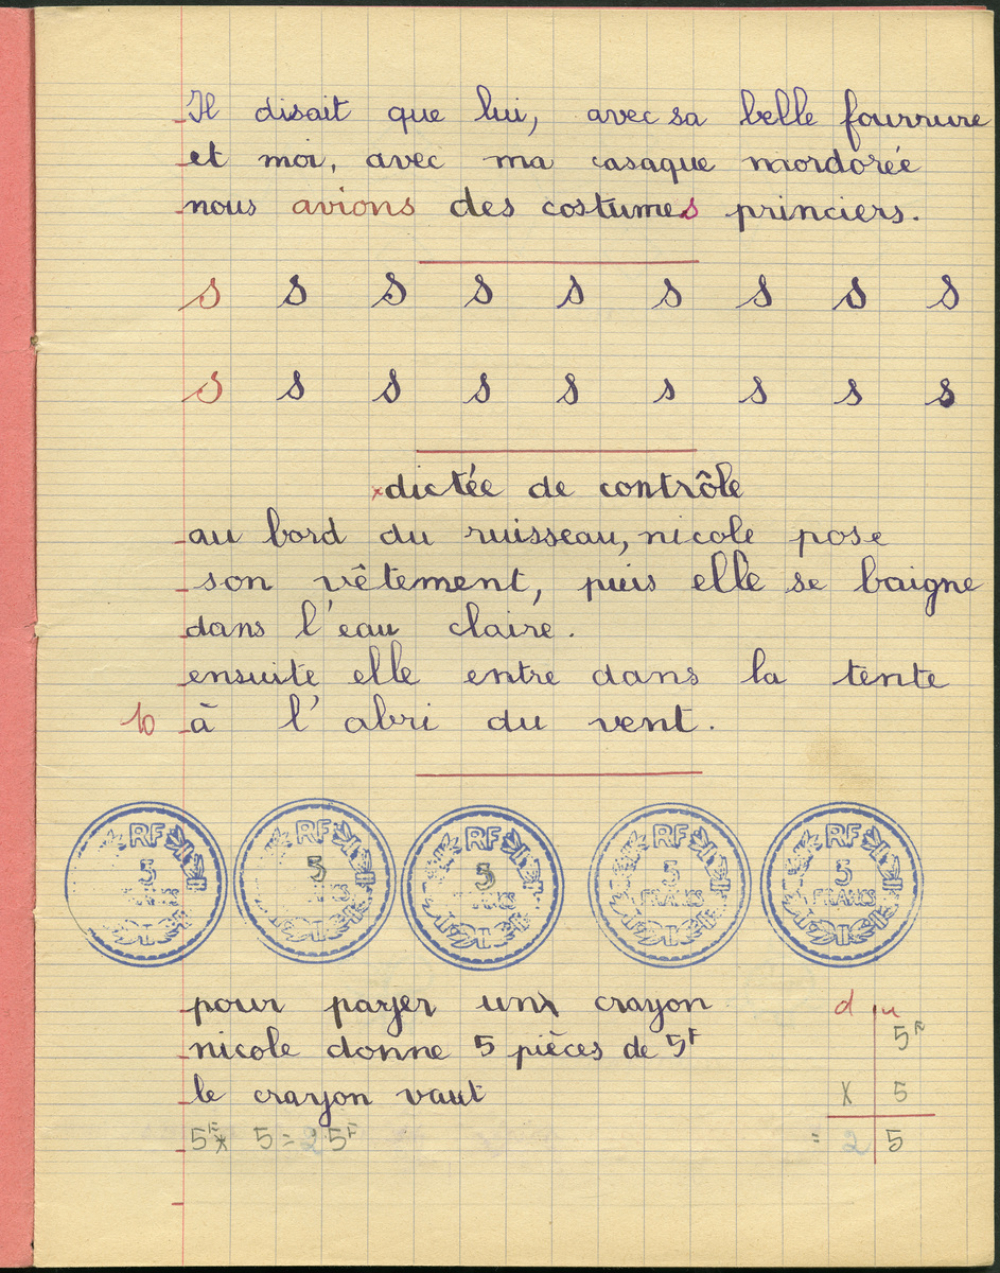 Il disait que lui, avec sa belle fourrure
et moi, avec ma casaque mordorée
nous avions des costumes princiers.
s s s s s s s s s
s s s s s s s s s
dictée de contrôle
au bord du ruisseau, nicole pose
son vêtement, puis elle se baigne
dans l'eau claire.
ensuite elle entre dans la tente
10 à l'abri du vent.
RF 5
RF 5
RF 5
RF 5 FRANCS
RF 5 FRANCS
pour payer un crayon
nicole donne 5 pièces de 5F
le crayon vaut
5F x 5 = 25F
d u
5F
x 5
= 2 5